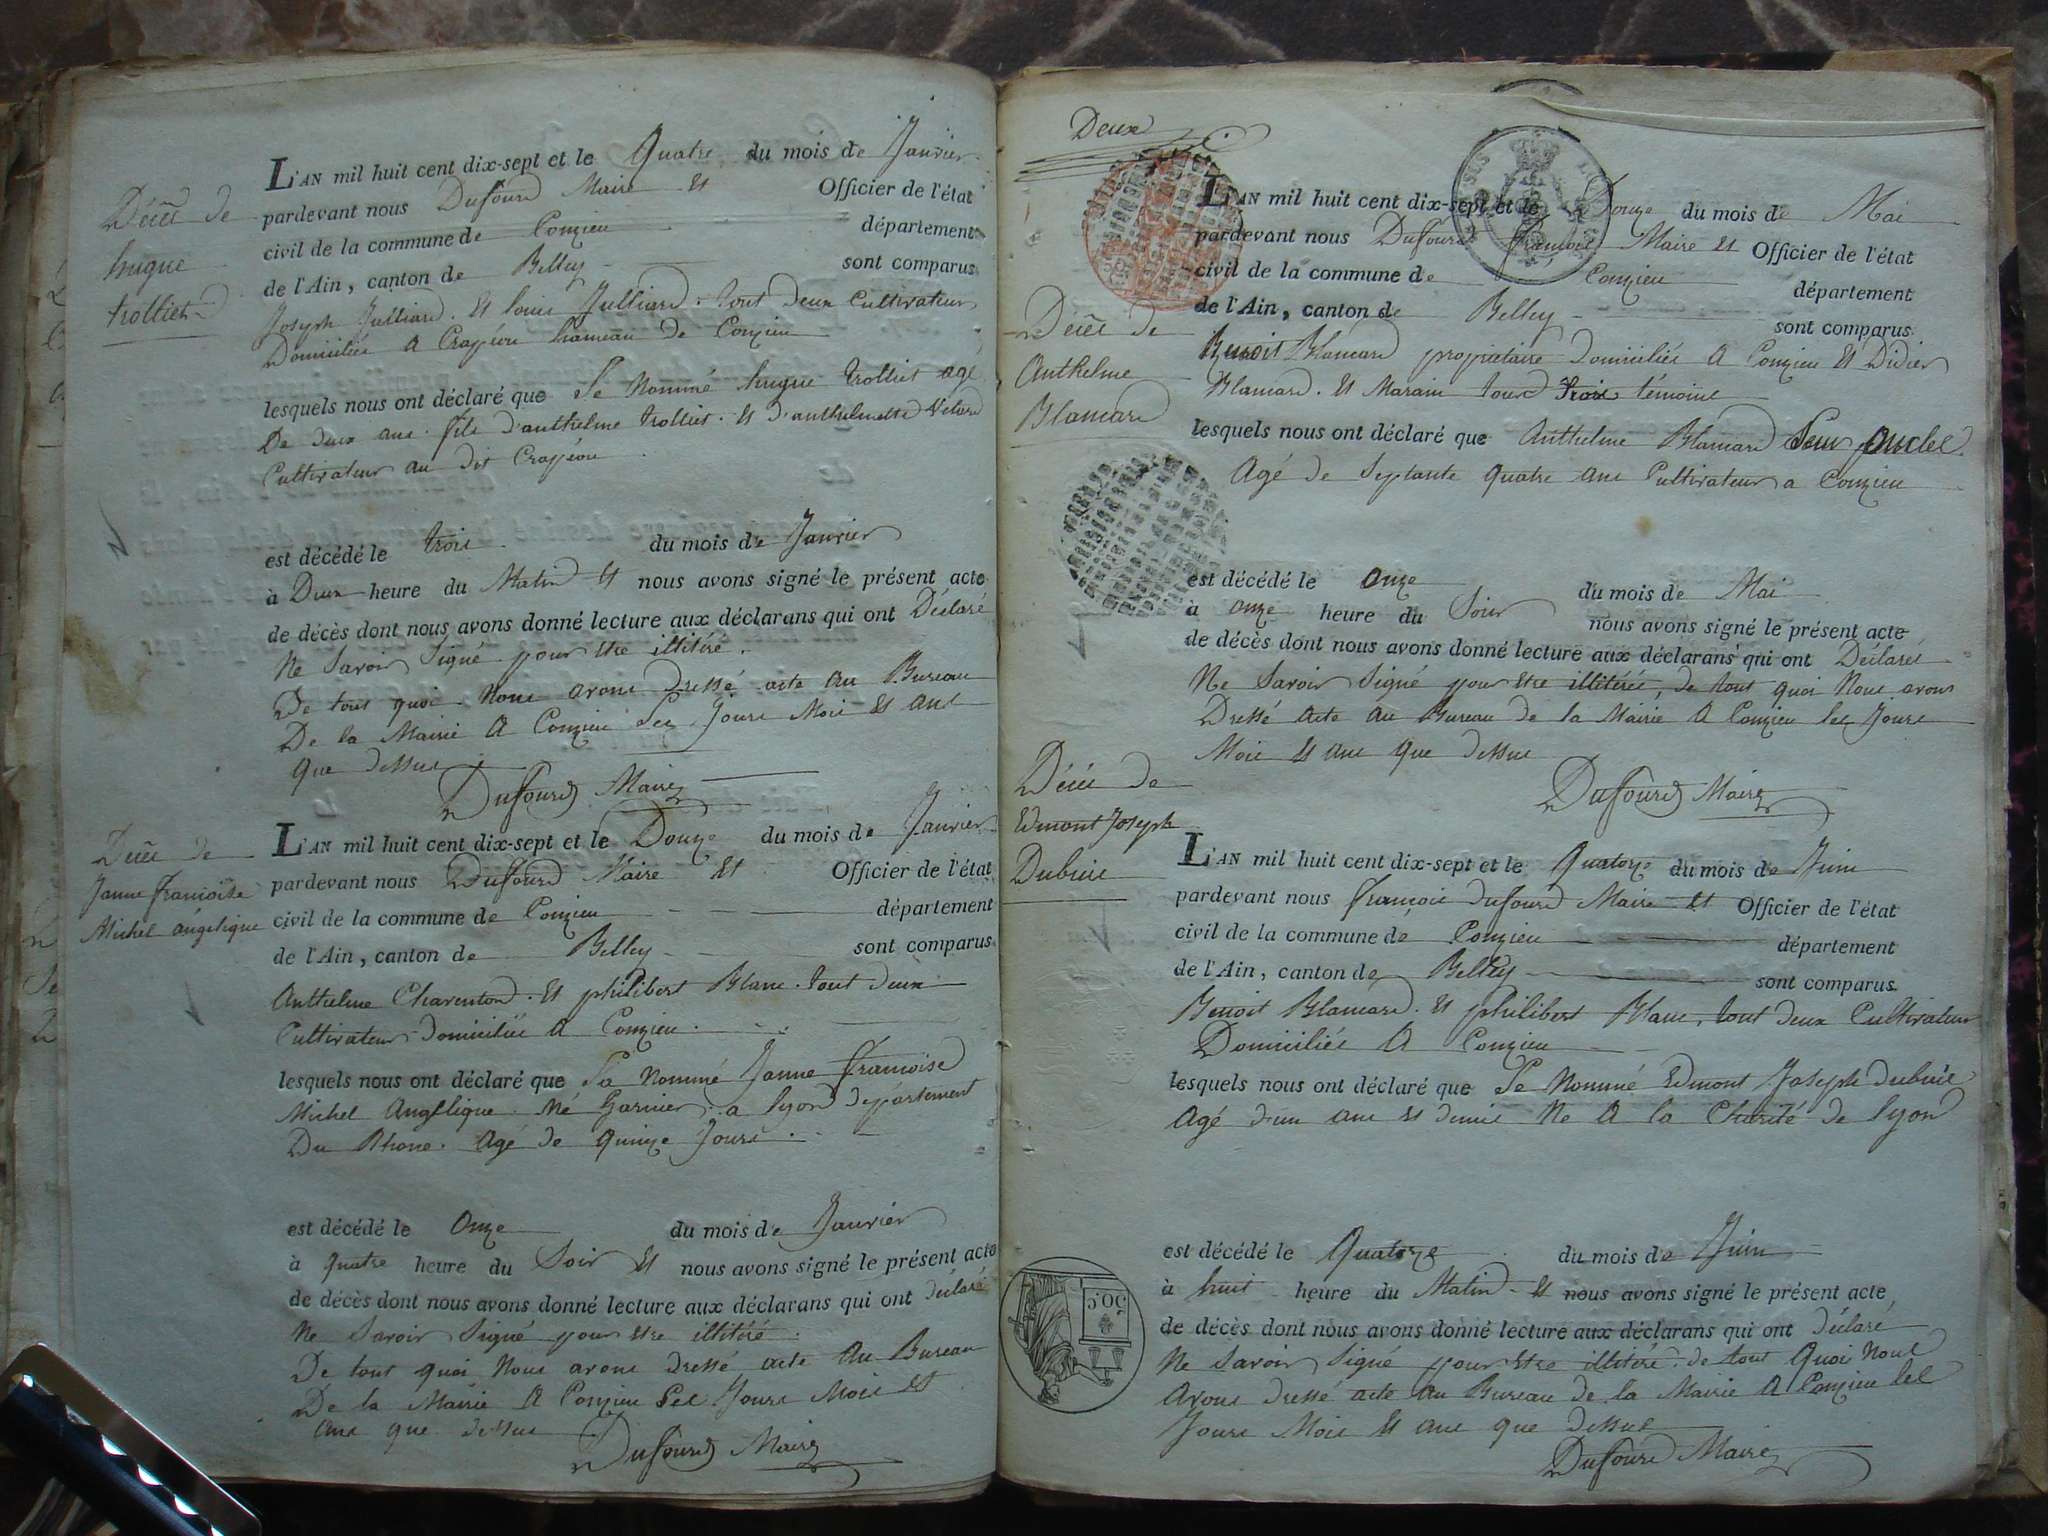 Décès de
hugue
trolliet
L'AN mil huit cent dix-sept et le Quatre du mois de Janvier
pardevant nous Dufourd Maire et Officier de l'état
civil de la commune de Conzieu département
de l'Ain, canton de Belley sont comparus
Joseph Julliard. Et louis Julliard. tout deux Cultivateur
Domiciliés A Crapéou hameau de Conzieu
lesquels nous ont déclaré que Le Nommé hugue trolliet agé
De deux ans. fils d'anthelme trolliet. Et d'anthelmette
Cultivateur au dit Crapéou
est décédé le trois du mois de Janvier
à Deux heure du Matin Et nous avons signé le présent acte
de décès dont nous avons donné lecture aux déclarans qui ont Déclaré
Ne Savoir Signé pour Etre illitéré.
De tout quoi Nous avons dressé acte au Bureau
De la Mairie A Conzieu Les Jours Mois Et ans
que dessus
Dufourd Maire
Décès de
Janne francoise
Michel angélique
L'AN mil huit cent dix-sept et le Douze du mois de Janvier
pardevant nous Dufourd Maire Et Officier de l'état
civil de la commune de Conzieu département
de l'Ain, canton de Belley sont comparus
Anthelme Charenton. Et philibert Blanc. tout deux
Cultivateur Domiciliés A Conzieu.
lesquels nous ont déclaré que La Nommé Janne francoise
Michel Angélique. Né Garnier. a lyon département
Du Rhone. Agé de Quinze Jours.
est décédé le Onze du mois de Janvier
à quatre heure du Soir Et nous avons signé le présent acte
de décès dont nous avons donné lecture aux déclarans qui ont déclaré
Ne Savoir Signé pour Etre illitéré.
De tout quoi Nous avons dressé acte Au Bureau
De la Mairie A Conzieu Les Jours Mois Et
ans que dessus
Dufourd Maire
Deux
Décès de
Anthelme
Blancard
L'AN mil huit cent dix-sept et le Douze du mois de Mai
pardevant nous Dufourd francois Maire Et Officier de l'état
civil de la commune de Conzieu département
de l'Ain, canton de Belley sont comparus
Benoit Blancard propriétaire Domiciliés A Conzieu Et Didier
Blancard. Et Marain tous trois témoins
lesquels nous ont déclaré que Anthelme Blancard Leur oncle
Agé de Septante quatre ans Cultivateur a Conzieu
est décédé le onze du mois de Mai
à onze heure du Soir nous avons signé le présent acte
de décès dont nous avons donné lecture aux déclarans qui ont Déclarés
Ne Savoir Signé pour Etre illitérés, de tout quoi Nous avons
Dressé acte Au Bureau de la Mairie A Conzieu les Jours
Mois Et ans que dessus
Dufourd Maire
Décès de
Edmont Joseph
Dubuis
L'AN mil huit cent dix-sept et le Quatorze du mois de Juin
pardevant nous francois Dufourd Maire Et Officier de l'état
civil de la commune de Conzieu département
de l'Ain, canton de Belley sont comparus
Benoit Blancard. Et philibert Blanc, tout deux Cultivateur
Domiciliés A Conzieu
lesquels nous ont déclaré que Le Nommé Edmont Joseph dubuis
Agé d'un ans Et demis Ne A la Charité de lyon
est décédé le Quatorze du mois de Juin
à huit heure du Matin Et nous avons signé le présent acte
de décès dont nous avons donné lecture aux déclarans qui ont déclaré
Ne Savoir Signé pour Etre illitéré. de tout Quoi Nous
Avons dressé acte Au Bureau de la Mairie A Conzieu les
Jours Mois Et ans que dessus
Dufourd Maire
50.C